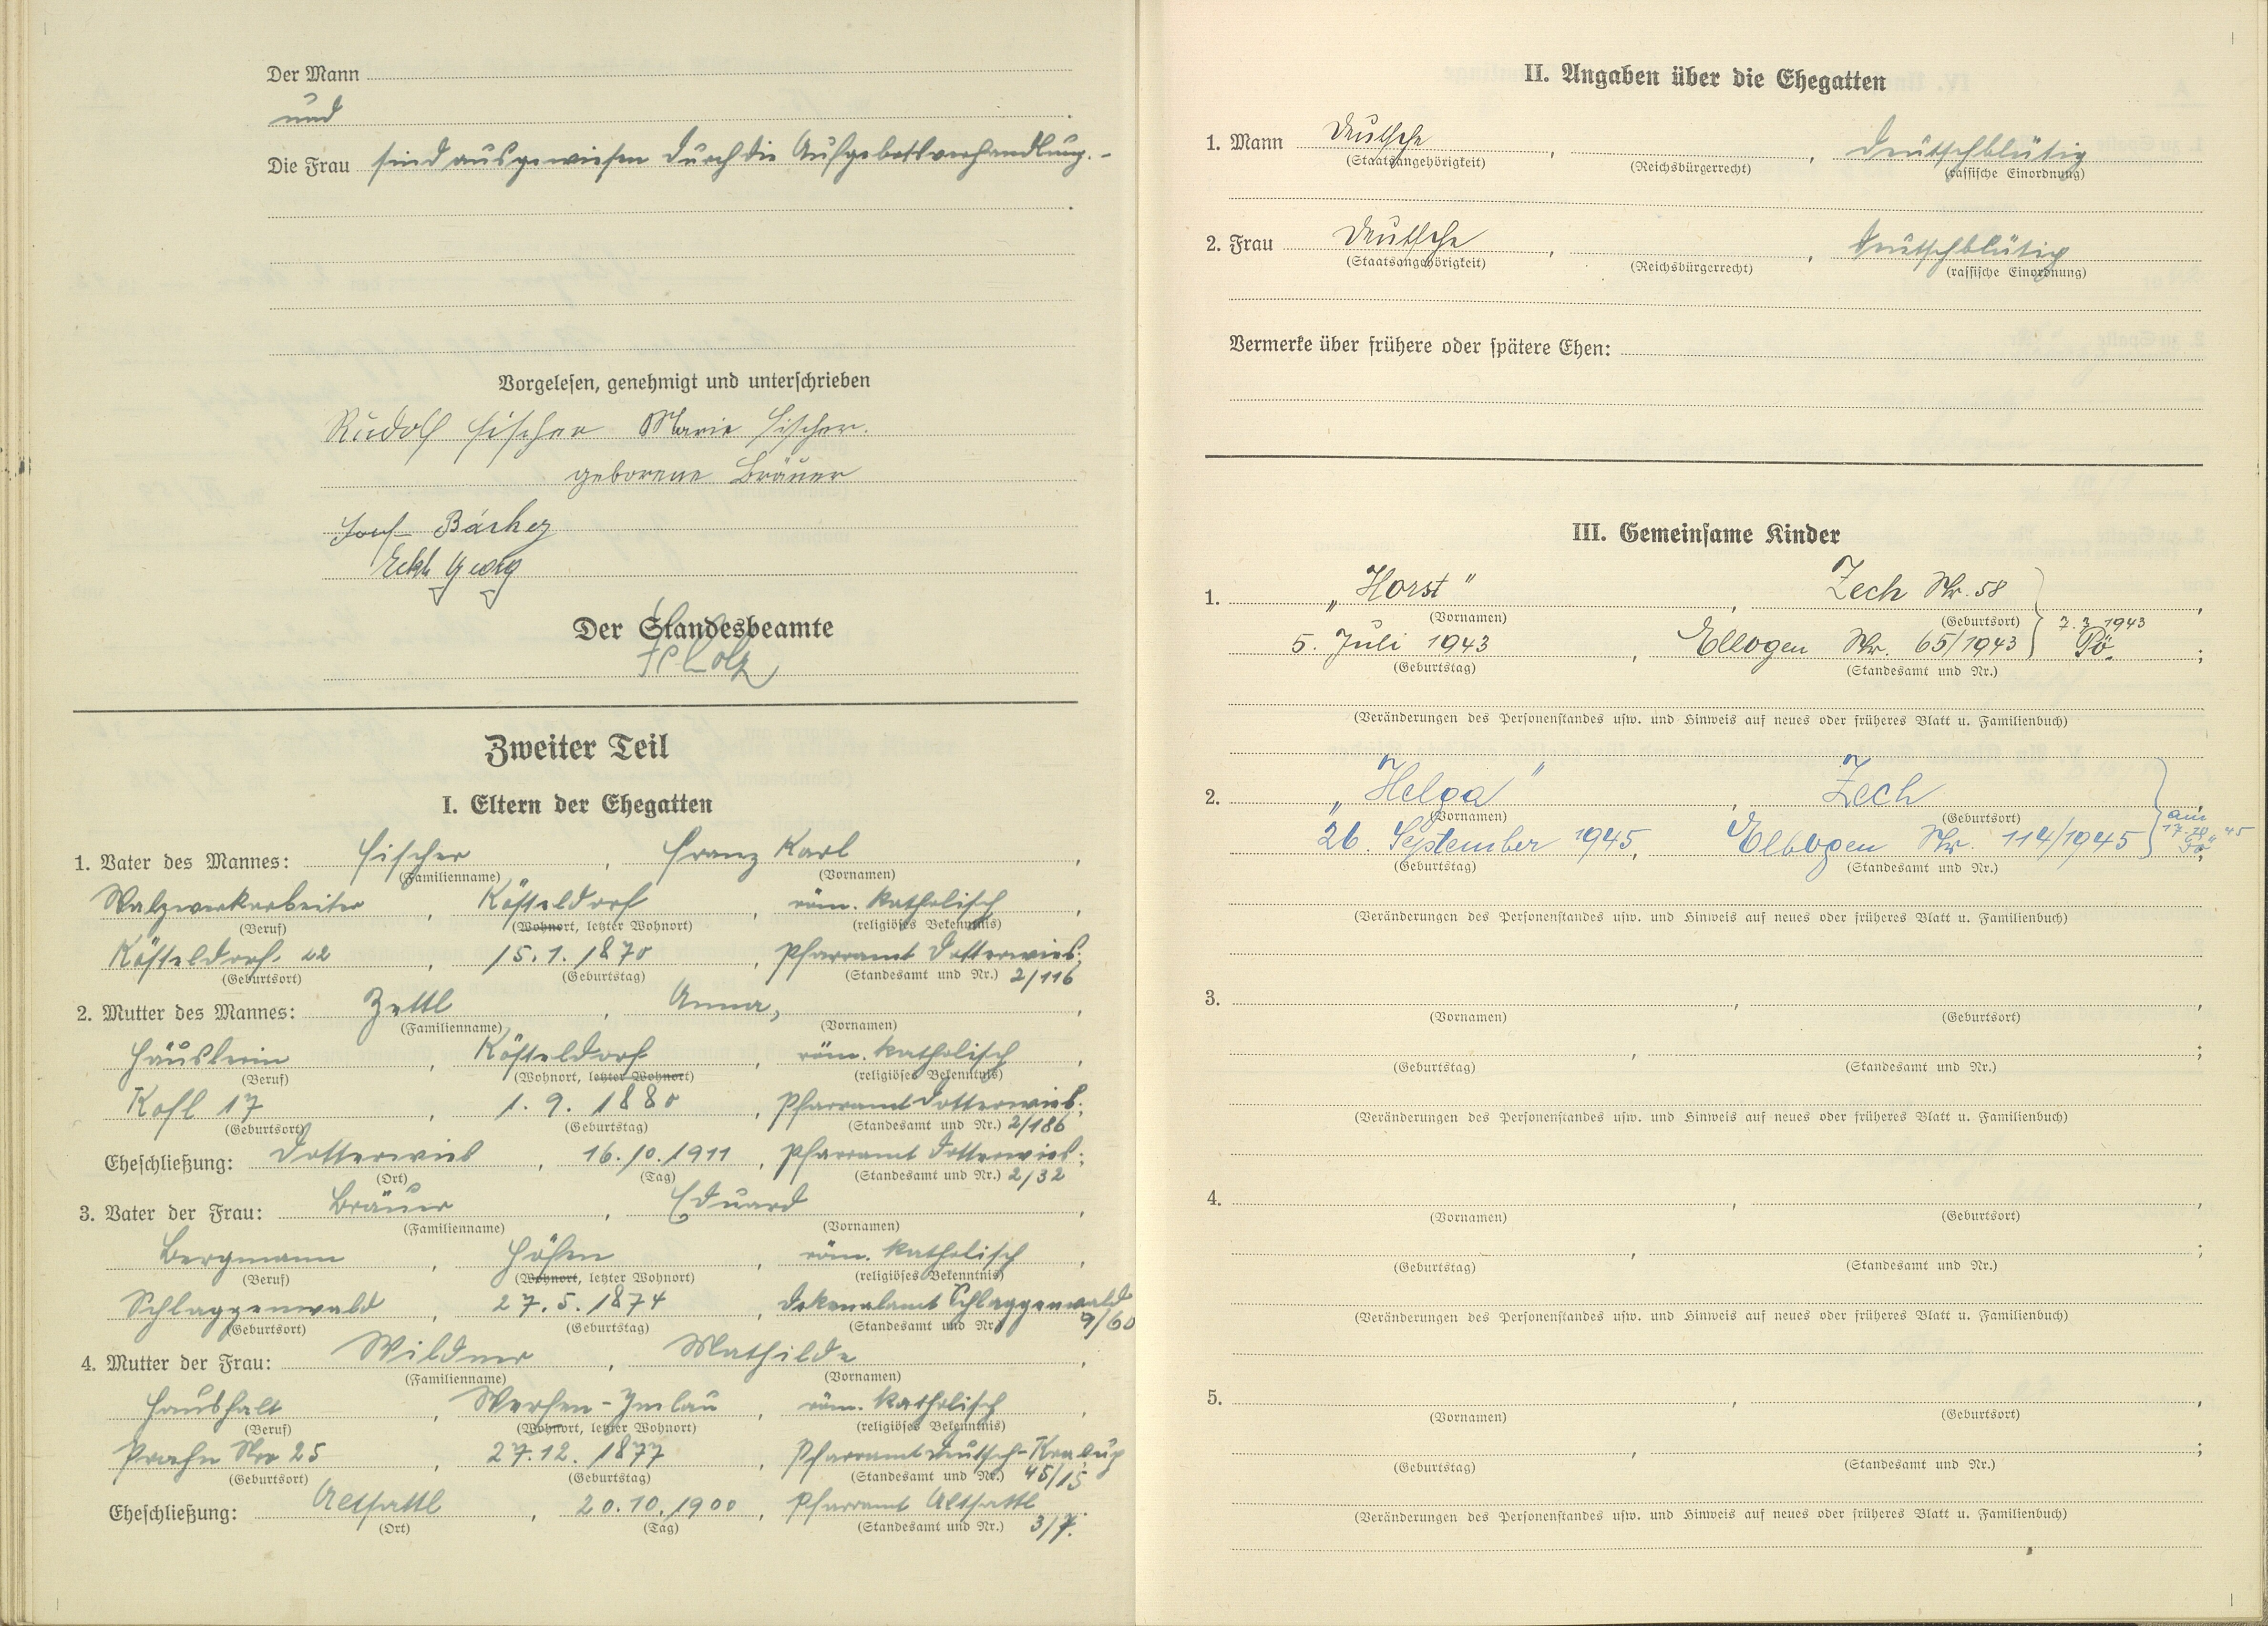 Der Mann
und
Die Frau sind ausgewiesen durch die Aufgebotsverhandlung.-
Vorgelesen, genehmigt und unterschrieben
Rudolf Fischer Marie Fischer.
geborene Bräuer
Josef
Georg
Der Standesbeamte
Scholz
Zweiter Teil
I. Eltern der Ehegatten
1. Vater des Mannes: Fischer, Franz Karl,
(Familienname) (Vornamen)
Walzwerkarbeiter, Kösteldorf, röm. katholisch,
(Beruf) (Wohnort, letzter Wohnort) (religiöses Bekenntnis)
Kösteldorf. 22, 15.1.1870, Pfarramt Dotterwies;
(Geburtsort) (Geburtstag) (Standesamt und Nr.) 2/116
2. Mutter des Mannes: Zettl, Anna,
(Familienname) (Vornamen)
Häuslerin, Kösteldorf, röm. katholisch,
(Beruf) (Wohnort, letzter Wohnort) (religiöses Bekenntnis)
Kohl 17, 1.9.1880, Pfarramt Dotterwies;
(Geburtsort) (Geburtstag) (Standesamt und Nr.) 2/186
Eheschließung: Dotterwies, 16.10.1911, Pfarramt Dotterwies;
(Ort) (Tag) (Standesamt und Nr.) 2/32
3. Vater der Frau: Bräuer, Eduard,
(Familienname) (Vornamen)
Bergmann, Höfen, röm. katholisch,
(Beruf) (Wohnort, letzter Wohnort) (religiöses Bekenntnis)
Schlaggenwald, 27.5.1874, Dekanalamt Schlaggenwald
(Geburtsort) (Geburtstag) (Standesamt und Nr.) 9/60
4. Mutter der Frau: Wildner, Mathilde,
(Familienname) (Vornamen)
Haushalt, Werfen-Imlau, röm. katholisch,
(Beruf) (Wohnort, letzter Wohnort) (religiöses Bekenntnis)
Prahn Nro 25, 27.12.1877, Pfarramt Deutsch-Kralup
(Geburtsort) (Geburtstag) (Standesamt und Nr.) 45/15
Eheschließung: Altsattl, 20.10.1900, Pfarramt Altsattl
(Ort) (Tag) (Standesamt und Nr.) 3/7.
II. Angaben über die Ehegatten
1. Mann Deutsche, , deutschblütig
(Staatsangehörigkeit) (Reichsbürgerrecht) (rassische Einordnung)
2. Frau Deutsche, , deutschblütig
(Staatsangehörigkeit) (Reichsbürgerrecht) (rassische Einordnung)
Vermerke über frühere oder spätere Ehen:
III. Gemeinsame Kinder
1. „Horst", Zech Nr. 58,
(Vornamen) (Geburtsort) 7.7.1943
5. Juli 1943, Elbogen Nr. 65/1943 Pö. ;
(Geburtstag) (Standesamt und Nr.)
(Veränderungen des Personenstandes usw. und Hinweis auf neues oder früheres Blatt u. Familienbuch)
2. „Helga", Zech,
(Vornamen) (Geburtsort) am
26. September 1945, Elbogen Nr. 114/1945 17.10.45
(Geburtstag) (Standesamt und Nr.)
(Veränderungen des Personenstandes usw. und Hinweis auf neues oder früheres Blatt u. Familienbuch)
3. , ,
(Vornamen) (Geburtsort)
, ;
(Geburtstag) (Standesamt und Nr.)
(Veränderungen des Personenstandes usw. und Hinweis auf neues oder früheres Blatt u. Familienbuch)
4. , ,
(Vornamen) (Geburtsort)
, ;
(Geburtstag) (Standesamt und Nr.)
(Veränderungen des Personenstandes usw. und Hinweis auf neues oder früheres Blatt u. Familienbuch)
5. , ,
(Vornamen) (Geburtsort)
, ;
(Geburtstag) (Standesamt und Nr.)
(Veränderungen des Personenstandes usw. und Hinweis auf neues oder früheres Blatt u. Familienbuch)